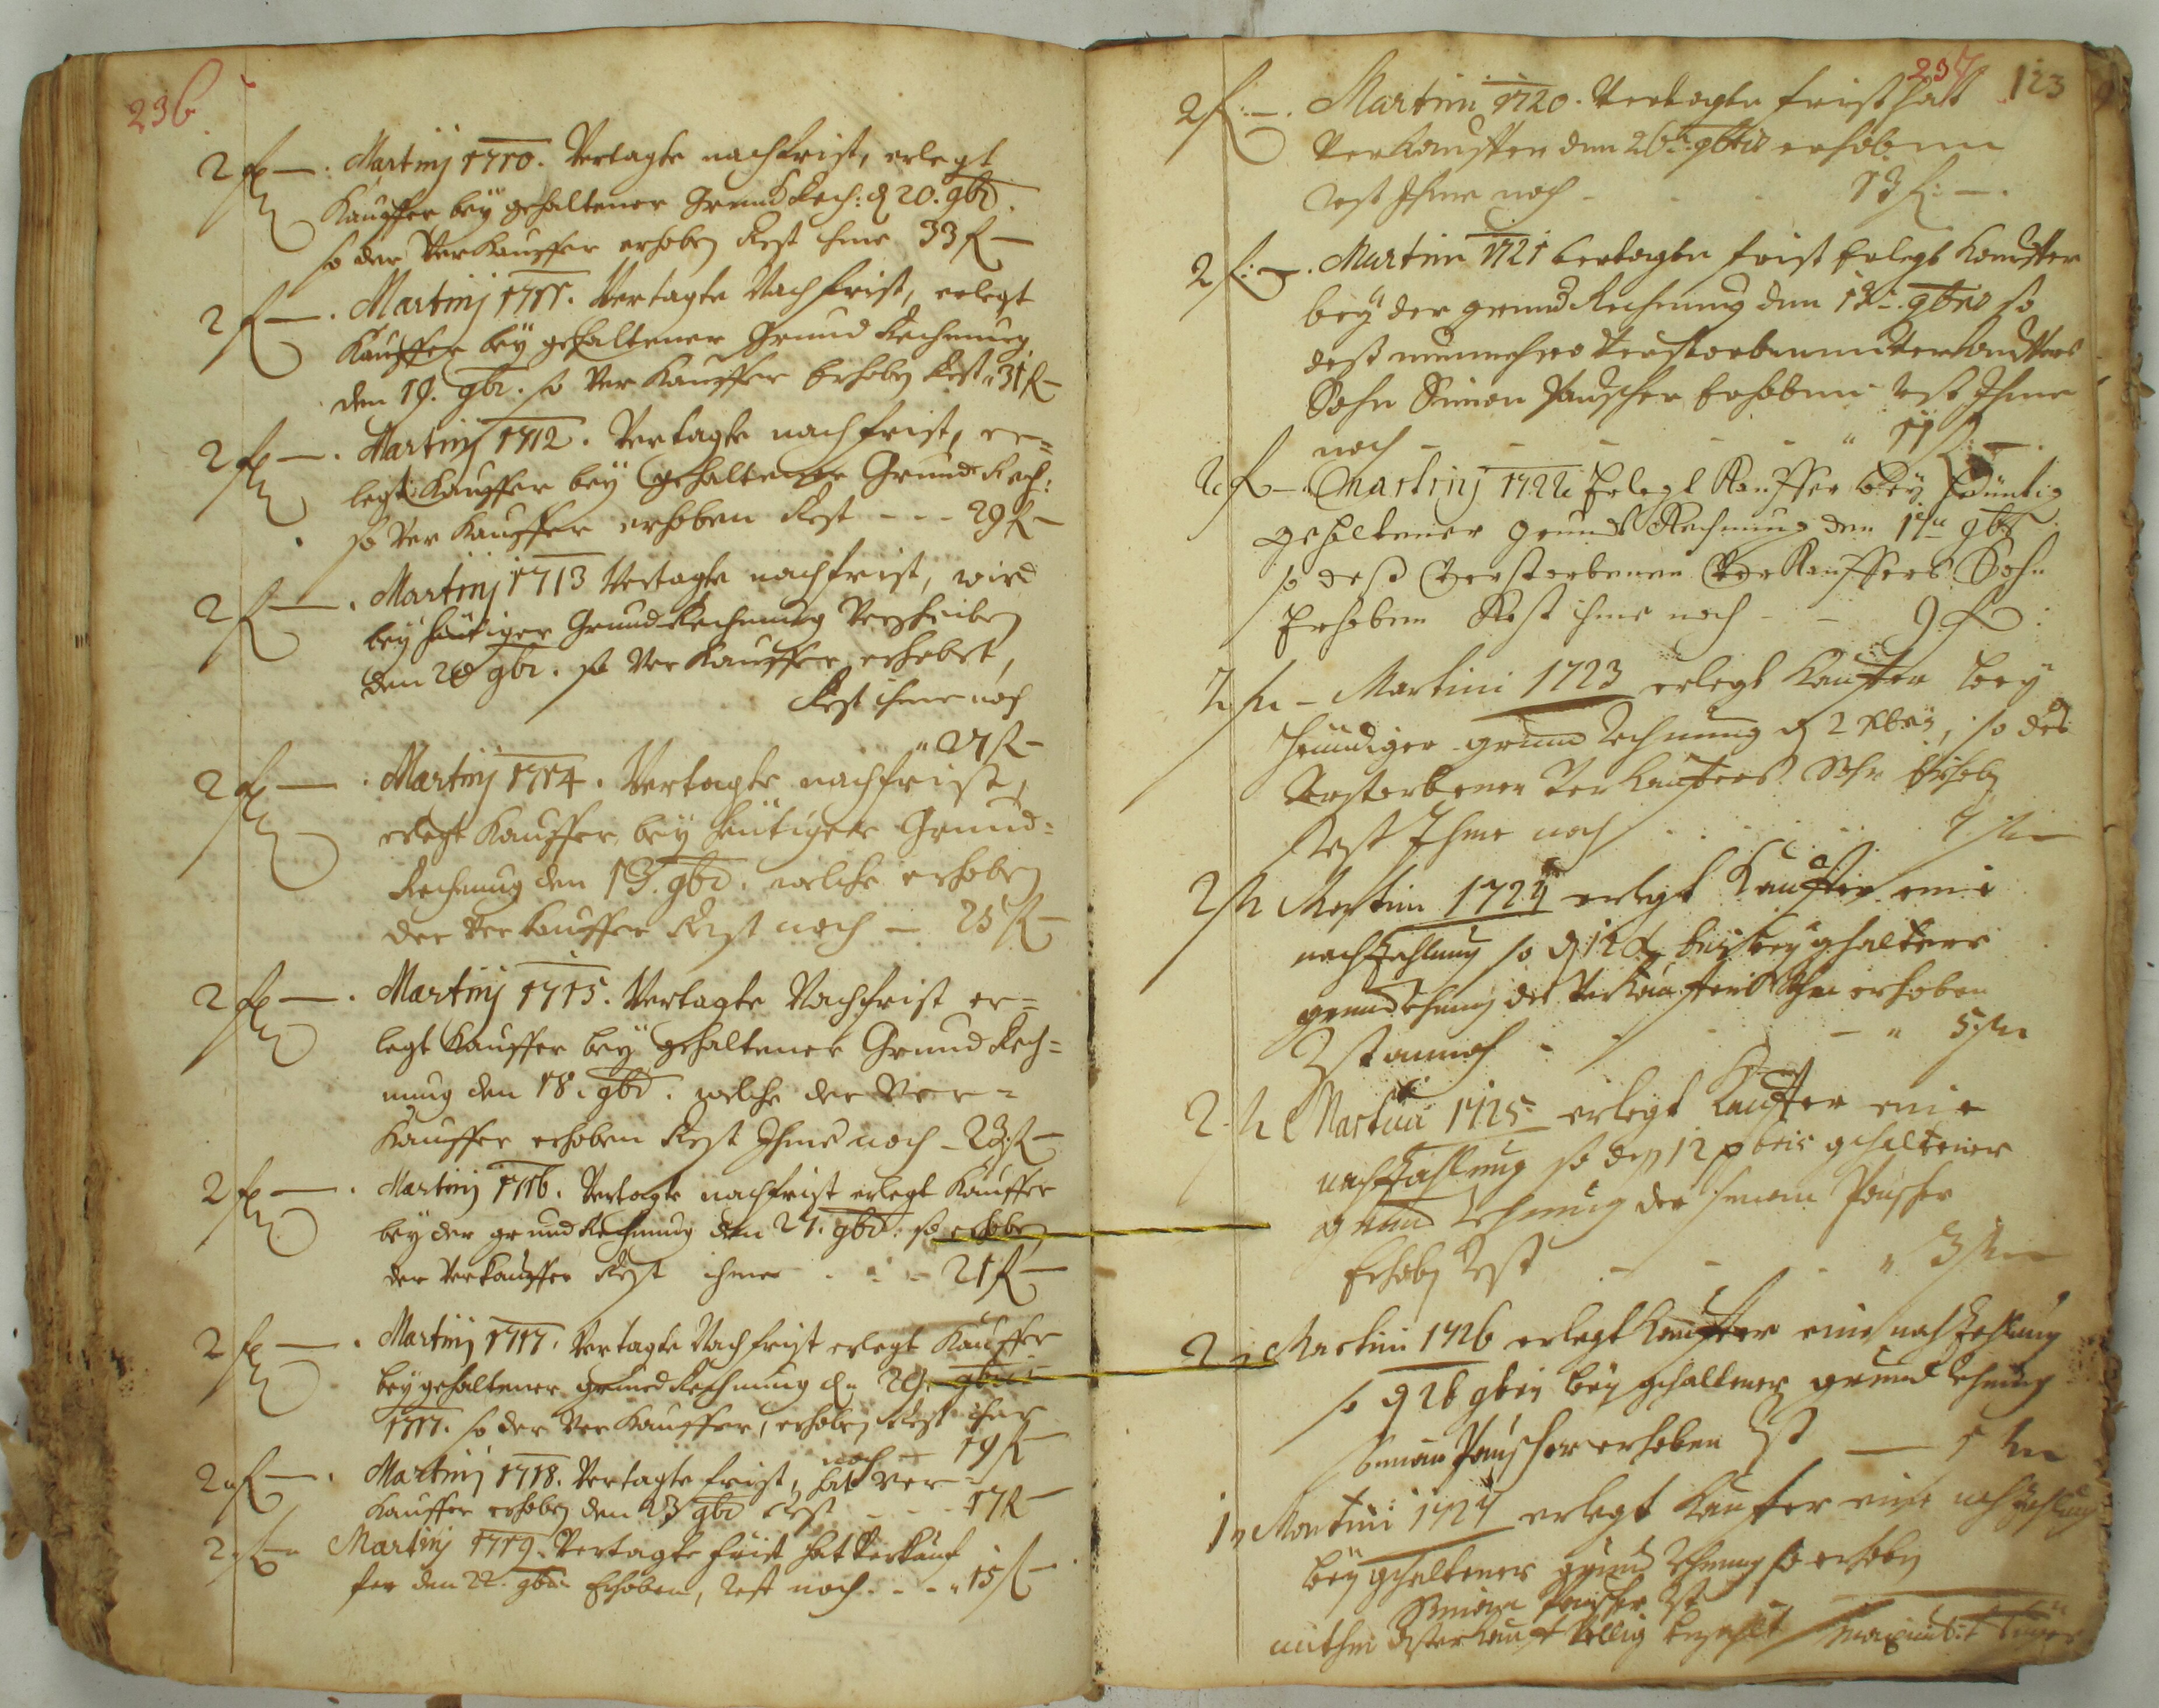 236
2 fl — . Martinj 1710. Vertagte nachfrist, erlegt
Kauffer bey gehaltener Grund Rech: d 20. 9br.
so der Verkauffer erhoben Rest ihme 33 fl —
2 fl — . Martinj 1711. Vertagte Nachfrist, erlegt
Kauffer bey gehaltener Grund Rechnung
den 19. 9br. so Verkauffer Erhoben Rest " 31 fl —
2 fl — . Martinj 1712. Vertagte nachfrist, er=
legt Kauffer bey gehaltener Grund Rech:
so Verkauffer erhoben Rest - - - 29 fl —
2 fl — . Martinj 1713 Vertagte nachfrist, wird
bey heütiger Grund Rechnung
den 20 9br. so Verkauffer erhebet,
Rest ihme noch
" 27 fl —
2 fl — . Martinj 1714. Vertagte nachfrist,
erlegt Kauffer bey heütiger Grund=
Rechnung den 13. 9br. welche erhoben
der Verkauffer Rest noch — 25 fl —
2 fl — . Martinj 1715. Vertagte Nachfrist er=
legt Kauffer bey gehaltener Grund Rech=
nung den 18. 9br. welche der Ver=
Kauffer erhoben Rest Ihme noch - 23 fl —
2 fl — . Martinj 1716. Vertagte nachfrist erlegt Kauffer
bey der grund Rechnung den 21. 9br. so erhoben
der Verkauffer Rest ihme - - - 21 fl —
2 fl — . Martinj 1717. Vertagte Nachfrist erlegt Kauffer
bey gehaltener grund Rechnung
1717. so der Verkauffer, erhoben Rest ihme
noch — 19 fl —
2 fl — . Martinj 1718. Vertagte frist, hat Ver=
Kauffer erhoben den 23 9br Rest - - - 17 fl —
2 fl — Martinj 1719. Vertagte frist hat Verkauf
fer den 22. 9br. Erhoben, Rest noch - - - " 15 fl —
237 123
2 fl: — . Martini 1720. Vertagte frist hatt
Verkauffer den 26 9bris erhoben
Rest Ihme noch - - - 13 fl: — .
2 fl: — . Martini 1721 Vertagte frist Erlegt Kauffer
bey der grund Rechnung den 9bris so
deß nunmehro Verstorbenen Verkauffers
Sohn Simon Pauscher Erhoben Rest Ihme
noch - - - - - " 11 fl: — .
2 fl — . Martinj 1722 Erlegt Kauffer bey
gehaltener grundt Rechnung den 9br
so deß Verstorbenen Verkauffers Sohn
Erhoben Rest ihme noch - - 9 fl :
2 fl — Martini 1723 erlegt Kauffer bey
grund Rechnung d 2 Xbris, so des
Verstorbenen Verkauffers Sohn Erhoben
Rest Ihme noch . . . . . 7 fl —
2 fl Martini 1724 erlegt Kauffer eine
nachzahlung so d 12 Xbris bey ghaltener
grund des Verkauffers Sohn erhoben
Rest annoch - - - — " 5 fl
2 fl Martini 1725 erlegt Kauffer eine
nachzahlung so den 12 Xbris gehaltener
grund Rechnung der Simon Pauscher
Erhoben Rest - - - " 3 fl
2 fl Martini 1726 erlegt Kauffer eine nachzahlung
so d 26 9bris bey gehaltener grund Rechnung
Simon Pauscher erhoben Rest — 1 fl
1 fl Martini 1727 erlegt Kauffer eine nachzahlung
bey gehaltener grund Rechnung so erhoben
Simon Pauscher ist
mithin dißer Kauff Völlig bezahlt